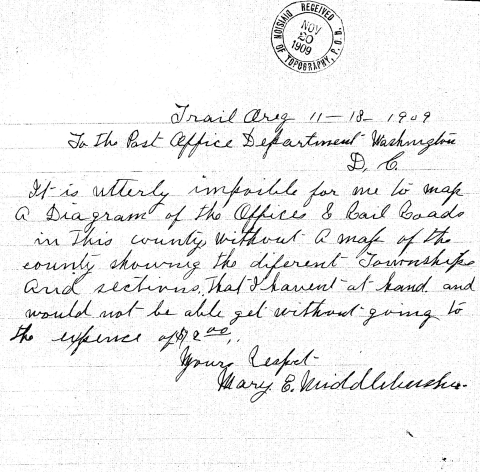 RECEIVED
NOV
20
1909
DIVISION OF TOPOGRAPHY, P.O.D.
Trail Oreg 11-18-1909
To the Post Office Department Washington
D, C.
It is utterly impoible for me to map
a Diagram of the Offices & Rail Roads
in this county without a map of the
county showing the diferent Townships
and sections, that I havent at hand and
would not be able get without going to
the expence of $ 2 00,,
Yours Respect-
Mary E. Middlebusher